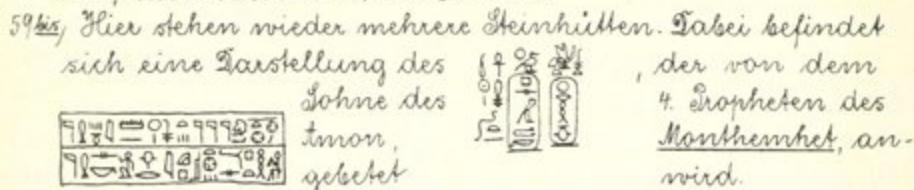 59bis, Hier stehen wieder mehrere Steinhütten. Dabei befindet
sich eine Darstellung des , der von dem
Sohne des 4. Propheten des
Amon, Monthemhet, an-
gebetet wird.